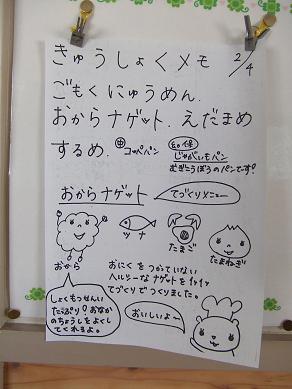 きゅうしょくメモ 2/4
ごもくにゅうめん.
おからナゲット. えだまめ
するめ. 中 コッペパン
幼・保
じゃがいもパン
むぎこうぼうのパンです!
おからナゲット
てづくりメニュー
おから
ツナ
たまご
たまねぎ
しょくもつせんい
たっぷり!おなか
のちょうしをよくし
てくれるよ。
おにくをつかっていない
ヘルシーなナゲットをイチイチ
てづくりでつくりました。
おいしいよ〜